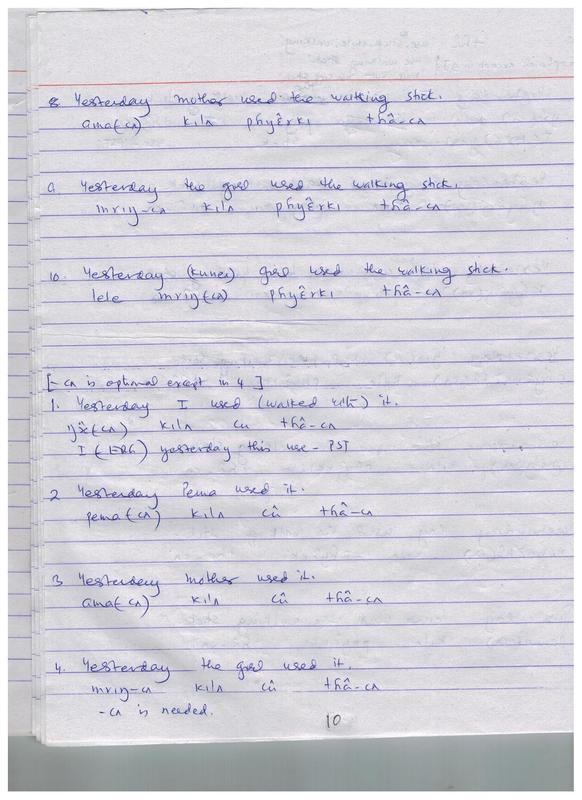 8. Yesterday mother used the walking stick.
ama(-cʌ) kilʌ phyɛ̂rkı thâ-cʌ
9 Yesterday the girl used the walking stick.
mrıŋ-cʌ kilʌ phyɛ̂rkı thâ-cʌ
10. Yesterday (kuner) girl used the walking stick.
lele mrıŋ(-cʌ) phyɛ̂rkı thâ-cʌ
[-cʌ is optional except in 4]
1. Yesterday I used (walked with) it.
(cʌ) kilʌ cu thâ-cʌ
I (ERG) yesterday this use-PST
2 Yesterday Pema used it.
pema(-cʌ) kilʌ cû thâ-cʌ
3 Yesterday mother used it.
ama(-cʌ) kilʌ cû thâ-cʌ
4. Yesterday the girl used it.
mrıŋ-cʌ kilʌ cû thâ-cʌ
-cʌ is needed.
10